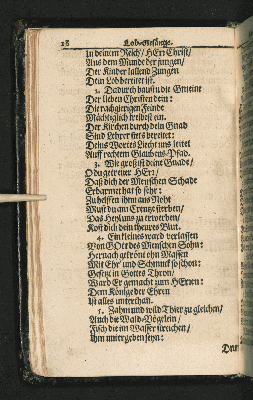 18 Lob-Gesänge.
In deinem Reich/ HErr Christ/
Aus dem Munde der jungen/
Der Kinder lallend Zungen
Dein Lob bereitet ist.
2. Dadurch baust du die Gmeine
Der lieben Christen dein:
Die rachgierigen Feinde
Mächtiglich treibest ein.
Der Kirchen durch dein Gnad
Sind Lehrer stets bereitet:
Deins Wortes Liecht uns leitet
Auff rechtem Glaubens-Pfad.
3. Wie groß ist deine Gnade/
O du getreuer HErr/
Daß dich der Menschen Schade
Erbarmet hat so sehr:
Zu helffen ihm aus Noht
Must du am Creutz sterben/
Das Heyl uns zu erwerben/
Kost dich dein theures Blut.
4. Ein kleines ward verlassen
Von GOtt des Menschen Sohn:
Hernach gekrönt ohn Massen
Mit Ehr und Schmuck so schon:
Gesetzt in Gottes Thron/
Ward Er gemacht zum HErren:
Dem König der Ehren
Ist alles unterthan.
5. Zahm und wild Thier zu gleichen/
Auch die Wald-Vögelein/
Fisch die im Wasser streichen/
Ihm untergeben seyn: